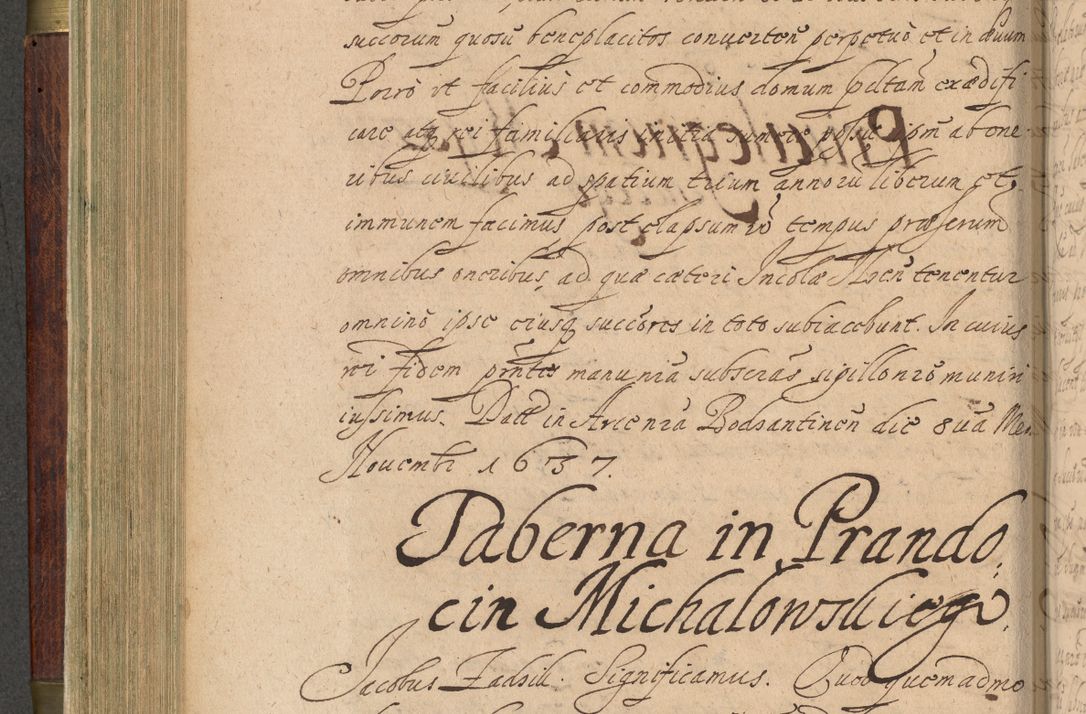 succorum quosū beneplacitos conuerteñ perpetuò et in æuum
Porrò vt faciliùs et commodius domum p̄dtam exædifi
care atq rei familiaris initia sumere possit ipm ab one
ribus ciuilibus ad spatium trium annorū liberum et
immunem facimus, post elapsum vò tempus præferum
omnibus oneribus, ad quæ cæteri Incolæ Ilzeñ tenentur
omninò ipse eiusq succores in toto subiacebunt. In cuius
rei fidem pr̃ntes manu nr̃a subscr̃as sigillo nr̃o muniri
iussimus. Datt in Arce nr̃a Bodzantineñ die 8uã Men
Nouembr 1637.
Taberna in Prando,
cin Michalowskieg°.
Jacobus Zadzik. Significamus. Quod quemadmo